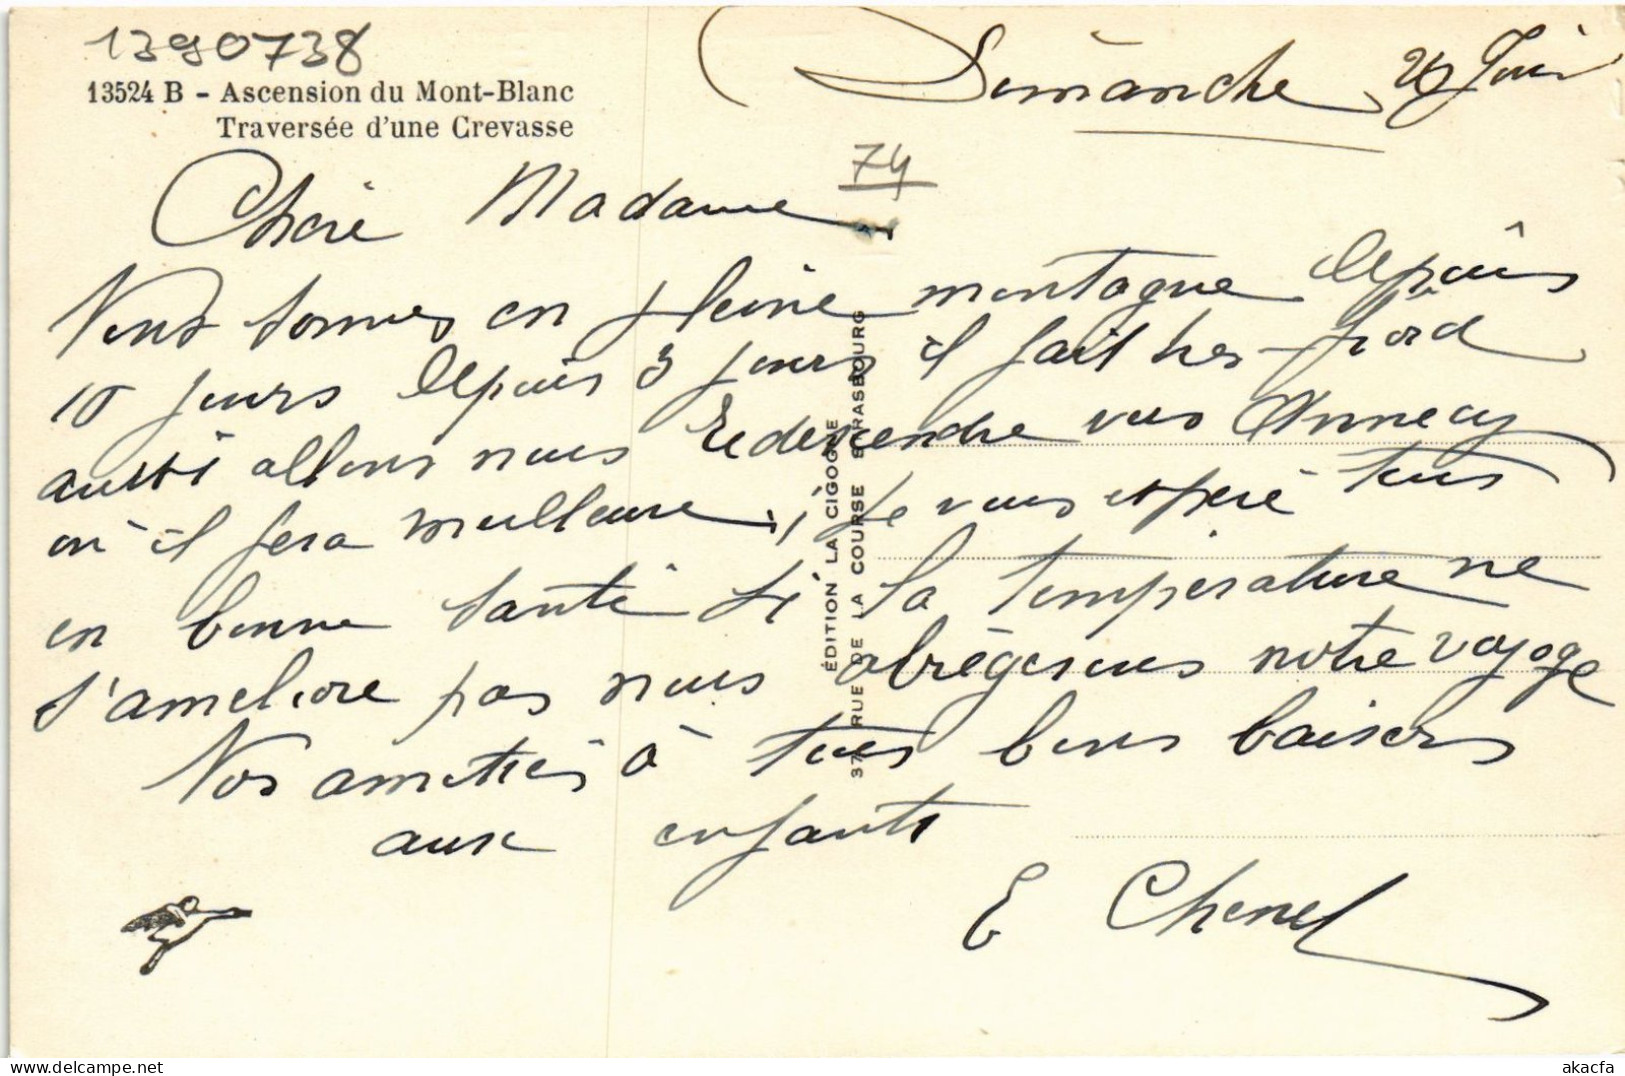 1390738
13524 B - Ascension du Mont-Blanc
Traversée d'une Crevasse
Dimanche 20 Juin
74
Chère Madame
Nous sommes en pleine montagne depuis
10 jours depuis 3 jours il fait tres froid
aussi allons nous redescendre vers Annecy
où il fera meilleure, Je vous espère tous
en bonne santé Si la température ne
s'améliore pas nous abrègerons notre voyage
Nos amitiés à tous bons baisers
aux enfants
E Chenel
ÉDITION LA CIGOGNE
37 RUE DE LA COURSE STRASBOURG
akacfa